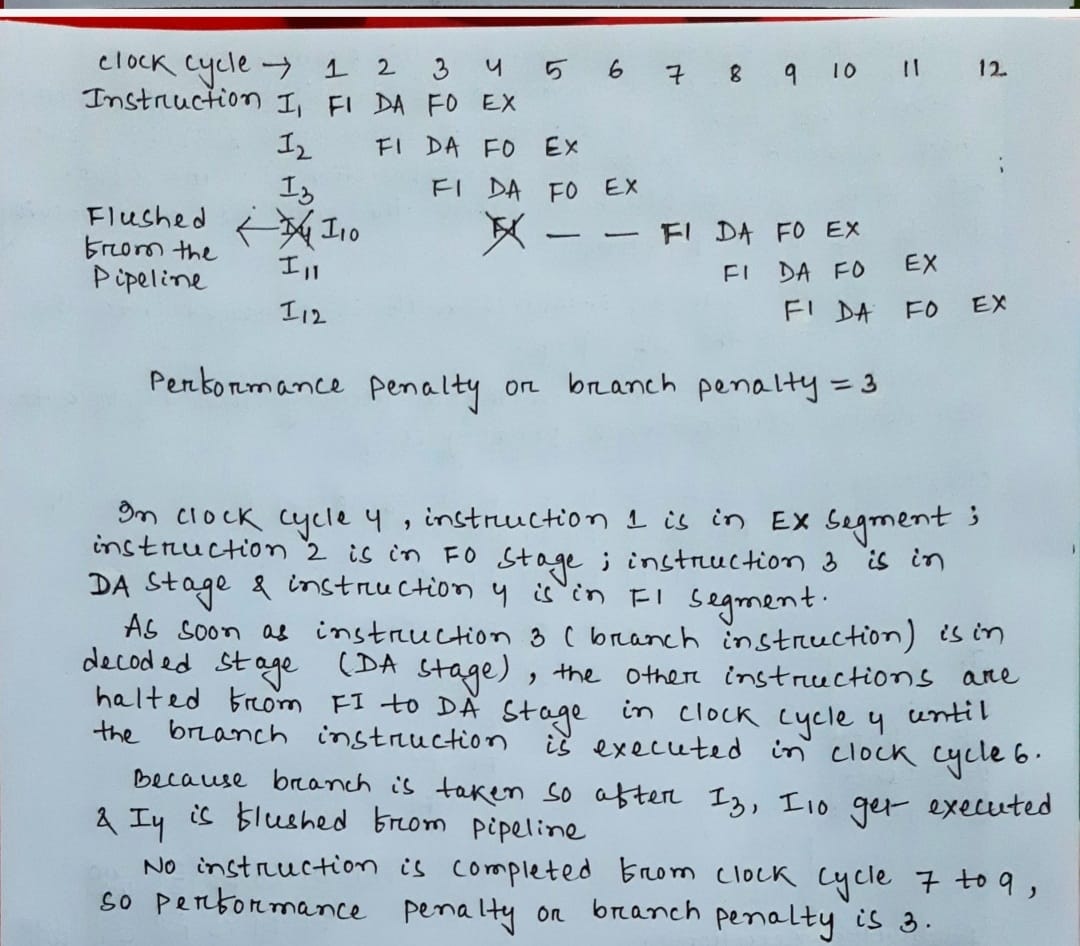 clock cycle → 1 2 3 4 5 6 7 8 9 10 11 12
Instruction I1 FI DA FO EX
I2 FI DA FO EX
I3 FI DA FO EX
Flushed from the Pipeline ← I4 I10 FI — — FI DA FO EX
I11 FI DA FO EX
I12 FI DA FO EX
Performance penalty or branch penalty = 3
In clock cycle 4, instruction 1 is in EX segment;
instruction 2 is in FO stage; instruction 3 is in
DA stage & instruction 4 is in FI segment.
As soon as instruction 3 (branch instruction) is in
decoded stage (DA stage), the other instructions are
halted from FI to DA stage in clock cycle 4 until
the branch instruction is executed in clock cycle 6.
Because branch is taken so after I3, I10 get executed
& I4 is flushed from pipeline
No instruction is completed from clock cycle 7 to 9,
so performance penalty or branch penalty is 3.